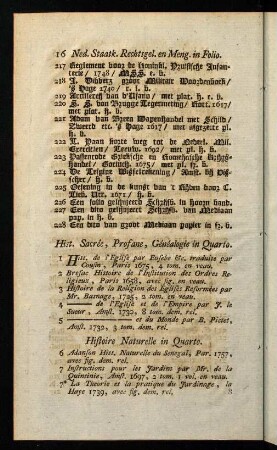 16 Ned. Staatk. Rechtsgel. en Meng. in Folio.
217 Reglement voor de Koninkl. Pruisische Infan-
terie, 1748, MSS. e. b.
218 J. Ribberz groot Militair Woordenboek,
's Hage 1740, r. l. b.
219 Artillerey van d'Ulano, met plat. h. e. b.
220 S. S. van Brugge Legermeting, Gort. 1617,
met plat. h. b.
221 Adam van Breen Wapenhandel met Schild,
Zweerd etc. 's Hage 1617, met pl.
h. b.
222 L. Paan korte weg tot de Nederl. Mil.
Exercitien, Leeuw. 1682, met pl. h. b.
223 Griexsche en Romeinsche
handel, 1675, met pl. fr. b.
224 De Wisselrekening, Amst. bij
h. b.
225 Oefening in de kunst van 't door C.
1671, h. b.
226 Een folio Schryfb. in hoorn band.
227 Een dito Schryfb. van Mediaan
pap. in h. b.
228 Een dito van groot Mediaan papier in h. b.
Hist. Sacrée, Profane, Généalogie in Quarto.
1 Hist. de l'Eglise par Eusebe &c. traduite par
Cousin, Paris 1675, 4 tom. en veau.
2 Bresac Histoire de l'Institution des Ordres Re-
ligieux, Paris 1658, avec fig. en veau.
3 Histoire de la Religion des Eglises Reformées par
Mr. Barnage, 1725, 2 tom. en veau.
4 —— de l'Eglise et de l'Empire par J. le
Sueur, Amst. 1732, 8 tom. dem. rel.
5 —— et du Monde par B. Pictet,
Amst. 1732, 3 tom. dem. rel.
Histoire Naturelle in Quarto.
6 Adanson Hist. Naturelle du Senegal, Par. 1757,
avec fig. dem. rel.
7 Instructions pour les Jardins par Mr. de la
Quintinie, Amst. 1697, 2 tom. 1 vol. en veau.
7* La Theorie et la pratique du Jardinage, la
Haye 1739, avec fig. dem. rel.